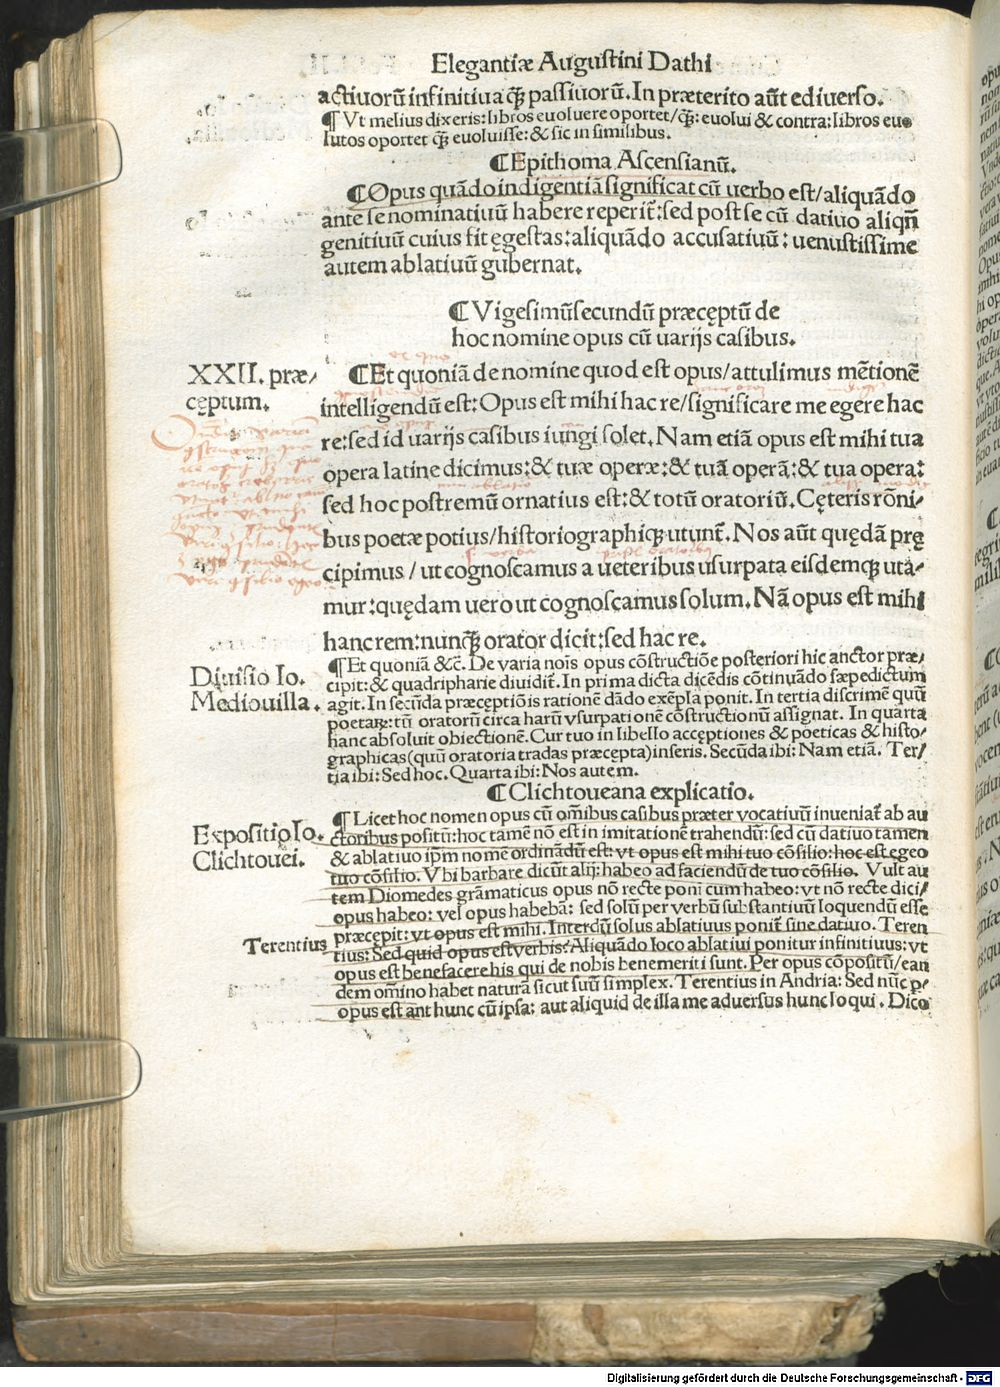 Elegantiæ Augustini Dathi
actiuorū infinitiua q̄ꝫ passiuorū. In præterito aūt ediuerso.
¶ Vt melius dixeris: libros euoluere oportet/q̄ꝫ: euolui & contra: libros euo
lutos oportet q̄ꝫ euoluisse: & sic in similibus.
¶ Epithoma Ascensianū.
¶ Opus quādo indigentiā significat cū uerbo est/aliquādo
ante se nominatiuū habere reperit̄: sed post se cū datiuo aliqn̄
genitiuū cuius fit ęgestas: aliquādo accusatiuū: uenustissime
autem ablatiuū gubernat.
¶ Vigesimūsecundū præcęptū de
hoc nomine opus cū uarijs casibus.
XXII. præ/
cęptum.
¶ Et quoniā de nomine quod est opus/attulimus mētionē
intelligendū est: Opus est mihi hac re/significare me egere hac
re: sed id uarijs casibus iungi solet. Nam etiā opus est mihi tua
opera latine dicimus: & tuæ operæ: & tuā operā: & tua opera:
sed hoc postremū ornatius est: & totū oratoriū. Cęteris rōni/
bus poetæ potius/historiographiqꝫ utunt̄. Nos aūt quędā prę
cipimus/ut cognoscamus a ueteribus usurpata eisdemqꝫ utā/
mur: quędam uero ut cognoscamus solum. Nā opus est mihi
hanc rem: nunq̄ꝫ orator dicit: sed hac re.
Diuisio Io.
Mediouilla.
¶ Et quoniā &c̄. De varia noīs opus cōstructiōe posteriori hic anctor præ/
cipit: & quadripharie diuidit̄. In prima dicta dicēdis cōtinuādo sæpedictum
agit. In secūda præceptiōis rationē dādo exēpla ponit. In tertia discrimē quū
poetaꝝ: tū oratorū circa harū vsurpationē cōstructionū assignat. In quarta
hanc absoluit obiectionē. Cur tuo in libello acceptiones & poeticas & histo/
graphicas (quū oratoria tradas præcepta) inseris. Secūda ibi: Nam etiā. Ter/
tia ibi: Sed hoc. Quarta ibi: Nos autem.
¶ Clichtoueana explicatio.
Expositio Io.
Clichtouei.
¶ Licet hoc nomen opus cū om̄ibus casibus præter vocatiuū inueniat̄ ab au
ctoribus positū: hoc tamē nō est in imitationē trahendū: sed cū datiuo tamen
& ablatiuo ip̄m nomē ordinādū est: vt opus est mihi tuo cōsilio: hoc est egeo
tuo cōsilio. Vbi barbare dicūt alij: habeo ad faciendū de tuo cōsilio. Vult au
tem Diomedes grāmaticus opus nō recte poni cum habeo: vt nō recte dici/
opus habeo: vel opus habebā: sed solū per verbū substantiuū loquendū esse
præcepit: vt opus est mihi. Interdū solus ablatiuus ponit̄ sine datiuo. Teren
Terentius
tius: Sed quid opus est verbis? Aliquādo loco ablatiui ponitur infinitiuus: vt
opus est benefacere his qui de nobis benemeriti sunt. Per opus cōpositū/ean
dem om̄ino habet naturā sicut suū simplex. Terentius in Andria: Sed nūc p̱/
opus est aut hunc cū ipsa: aut aliquid de illa me aduersus hunc loqui. Dico
Digitalisierung gefördert durch die Deutsche Forschungsgemeinschaft - DFG